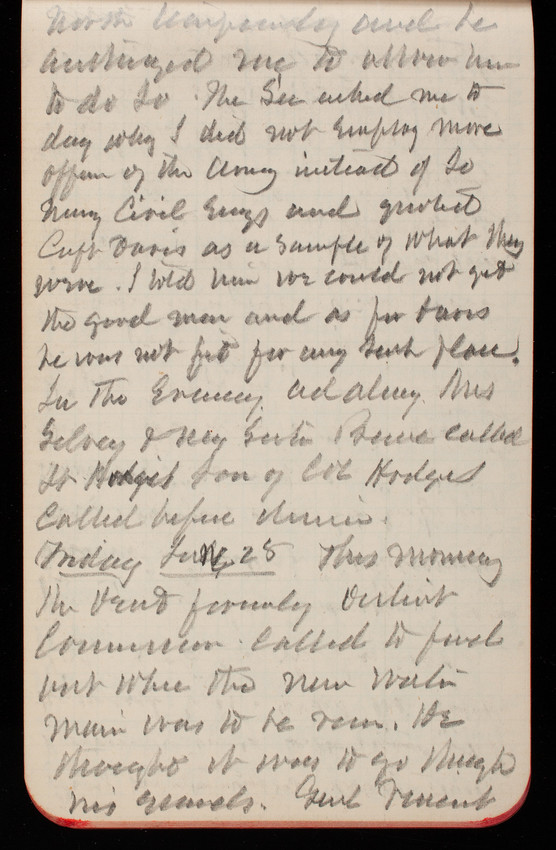 and he
authorized me to allow him
to do so. The Sec asked me to
day why I did not employ more
officers of the Army instead of so
many Civil Engs and quoted
Capt Davis as a sample of what they
were. I told him we could not get
the good men and as for Davis
he was not fit for any such place.
In the Evening Mrs
& her Sister called
Lt Hodges son of Col Hodges
called before dinner.
Friday 28 This morning
Mr Dent formerly District
Commissioner called to find
out where the new water
main was to be run. He
thought it was to go through
his grounds. Genl